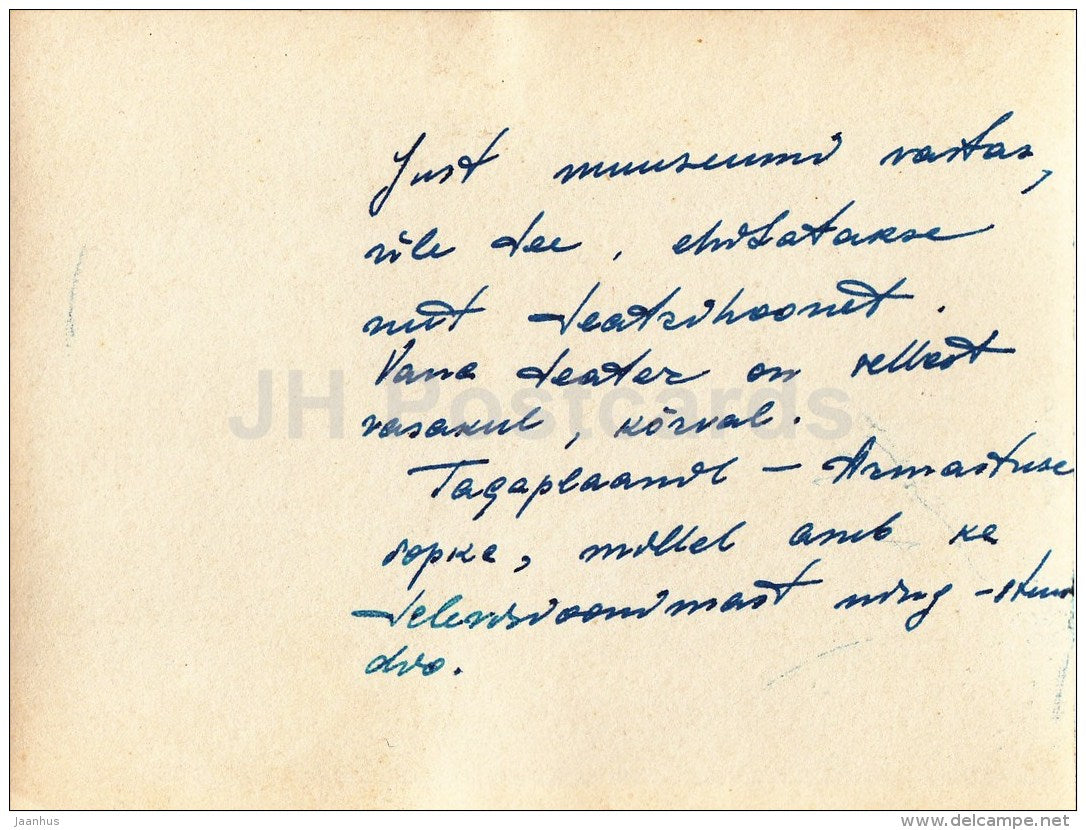 Just muuseumi vastas,
üle tee, ehitatakse
uut teatrihoonet.
Vana teater on sellest
vasakul, kõrval.
Tagaplaanil – Armastuse
sopka, millel asub ka
televisioonimast ning -stuu
dio.
JH Postcards
Jaanhus
www.delcampe.net